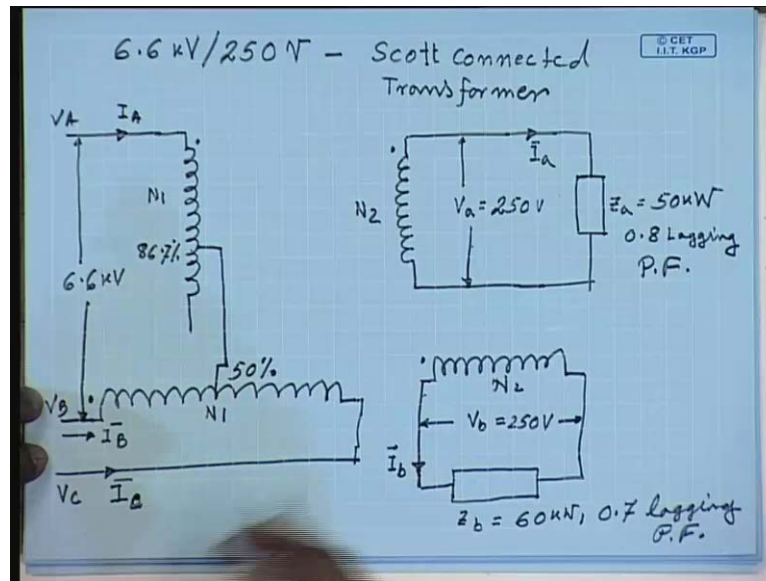 6.6 kV/250 V – Scott Connected
Transformer
© CET
I.I.T. KGP
VA
IA
N1
86.7%
6.6 kV
50%
VB
IB
N1
VC
IC
N2
Va = 250 V
Ia
Za = 50 kW
0.8 Lagging
P.F.
N2
Vb = 250 V
Ib
Zb = 60 kW, 0.7 lagging
P.F.